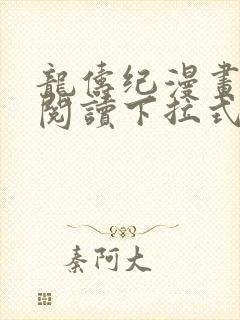 龍傳纪漫畫
閱讀下拉式
秦阿大